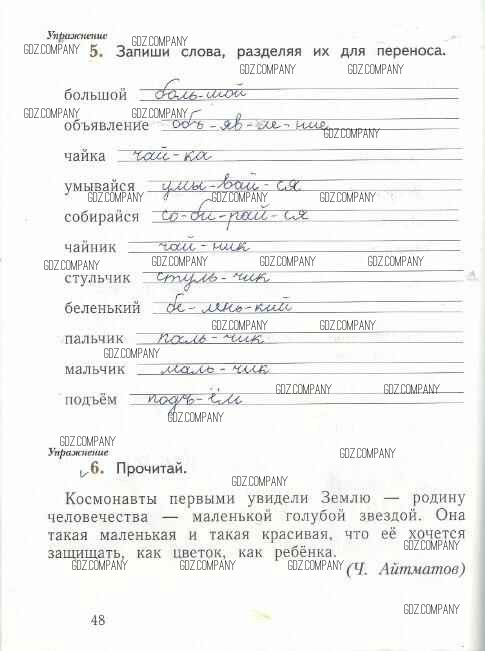 Упражнение
GDZ.COMPANY GDZ.COMPANY
5. Запиши слова, разделяя их для переноса.
GDZ.COMPANY GDZ.COMPANY
большой боль-шой
GDZ.COMPANY GDZ.COMPANY
объявление объ-яв-ле-ние
GDZ.COMPANY
чайка чай-ка
умывайся умы-вай-ся
GDZ.COMPANY GDZ.COMPANY GDZ.COMPANY
собирайся со-би-рай-ся
чайник чай-ник
GDZ.COMPANY GDZ.COMPANY GDZ.COMPANY GDZ.COMPANY
стульчик стуль-чик
беленький бе-лень-кий
GDZ.COMPANY GDZ.COMPANY
пальчик паль-чик
GDZ.COMPANY
мальчик маль-чик
GDZ.COMPANY GDZ.COMPANY
подъём подъ-ём
GDZ.COMPANY
GDZ.COMPANY
Упражнение
6. Прочитай.
GDZ.COMPANY
Космонавты первыми увидели Землю — родину
GDZ.COMPANY GDZ.COMPANY
человечества — маленькой голубой звездой. Она
такая маленькая и такая красивая, что её хочется
защищать, как цветок, как ребёнка.
GDZ.COMPANY GDZ.COMPANY GDZ.COMPANY GDZ.COMPANY
(Ч. Айтматов)
GDZ.COMPANY
48